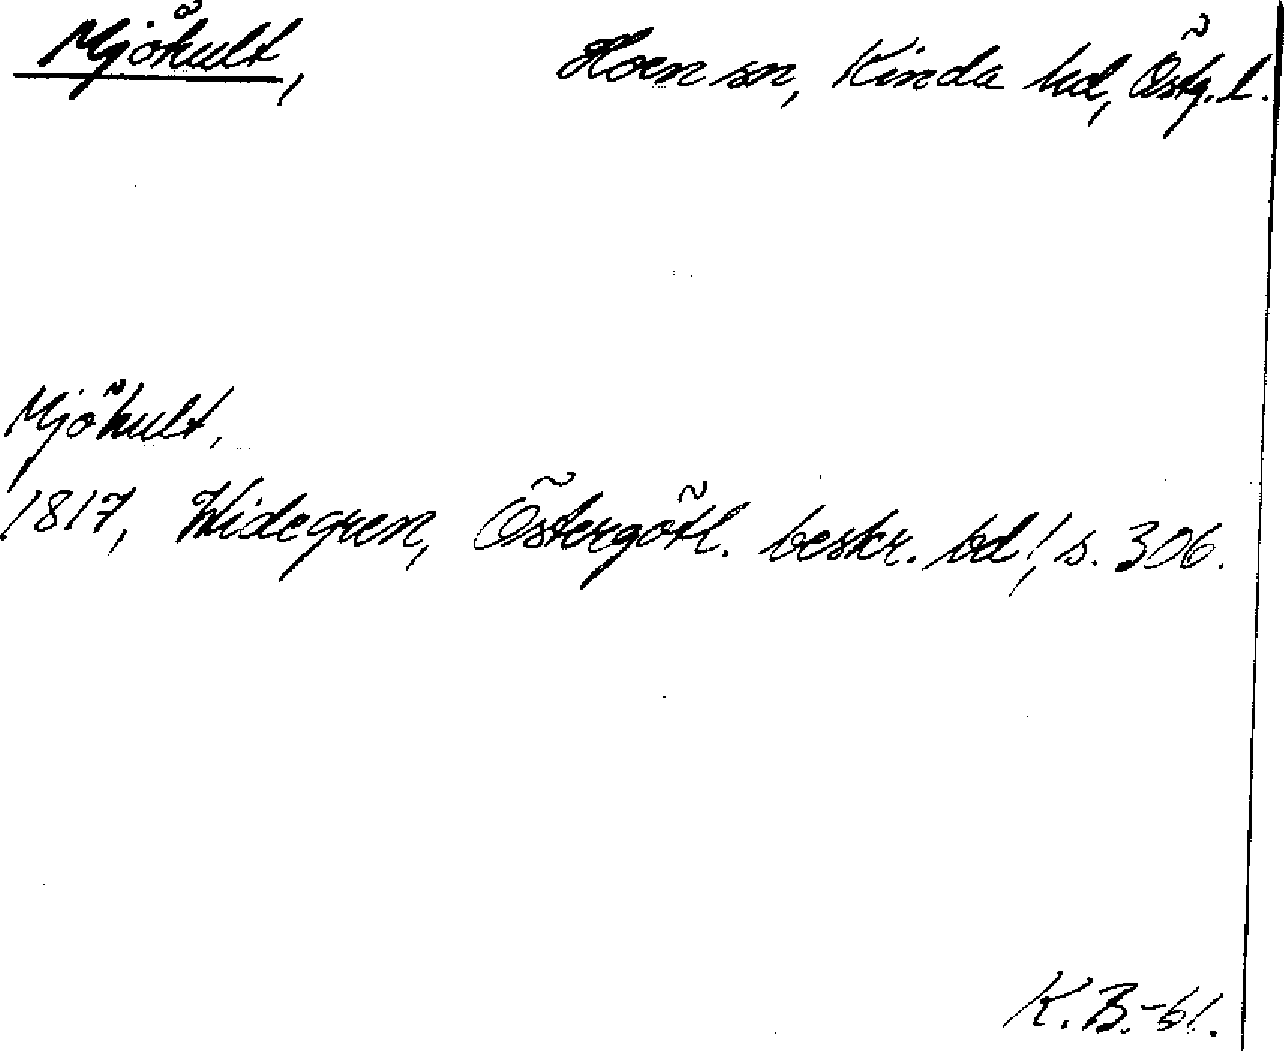 Mjöhult, Horn sn, Kinda hd, Östg. l.
Mjöhult,
1817, Widegren, Östergötl. beskr. bd 1, s. 306.
K. B. -61.